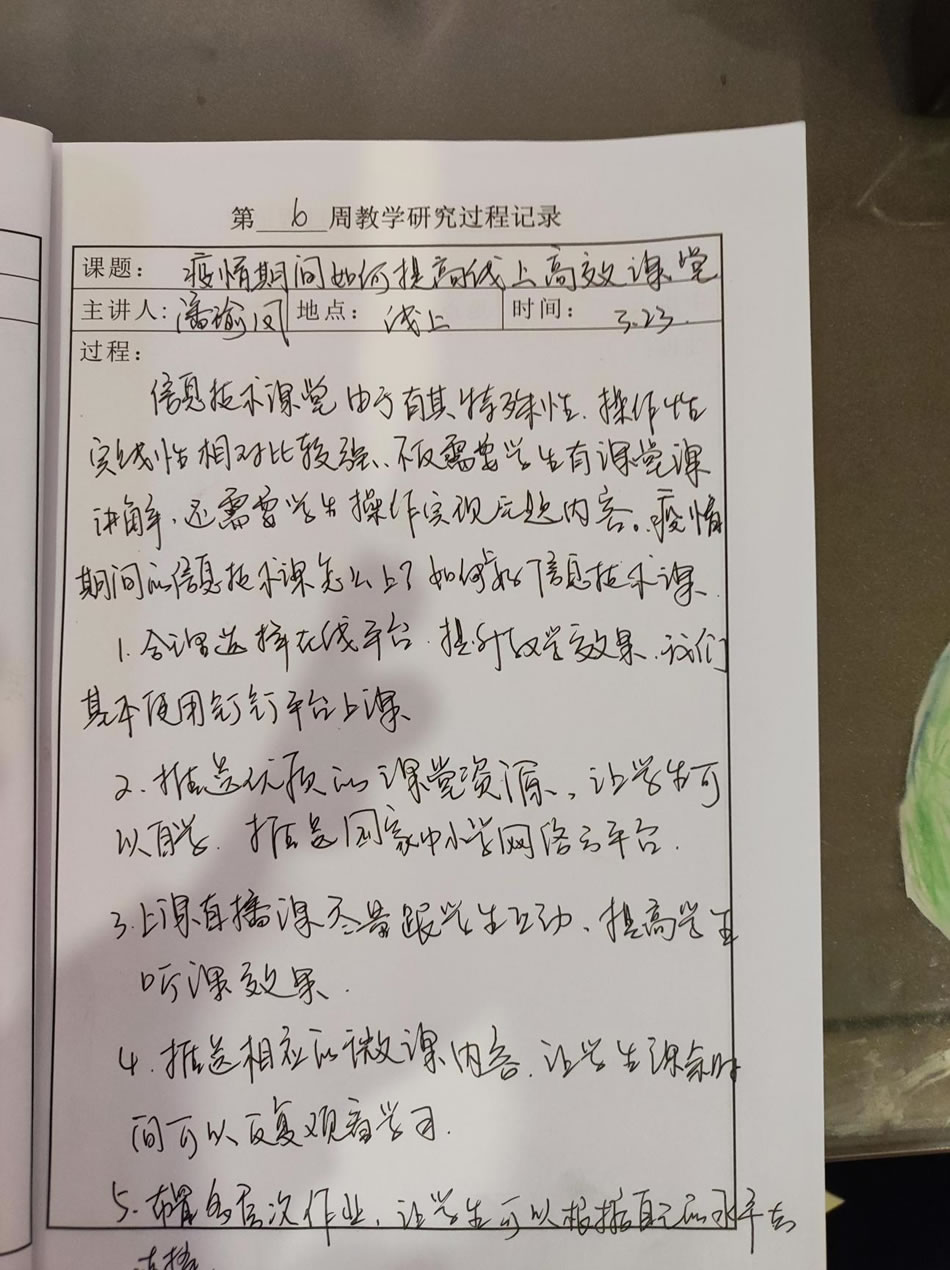 第 6 周教学研究过程记录
课题： 疫情期间如何提高线上高效课堂
主讲人: 潘瑜凤 地点： 线上 时间： 3.23.
过程：
信息技术课堂由于有其特殊性、操作性
实践性相对比较强、不仅需要学生有课堂课
讲解，还需要学生操作实现主题内容。疫情
期间的信息技术课怎么上？如何上好信息技术课、
1. 合理选择在线平台. 提升教学效果、我们
基本使用钉钉平台上课、
2. 推送优质的课堂资源、让学生可
以自学. 推送国家中小学网络云平台.
3. 上课直播课尽量跟学生互动、提高学生
听课效果.
4. 推送相应的微课内容. 让学生课余时
间可以反复观看学习.
5. 布置多层次作业，让学生可以根据自己的水平去
选择.